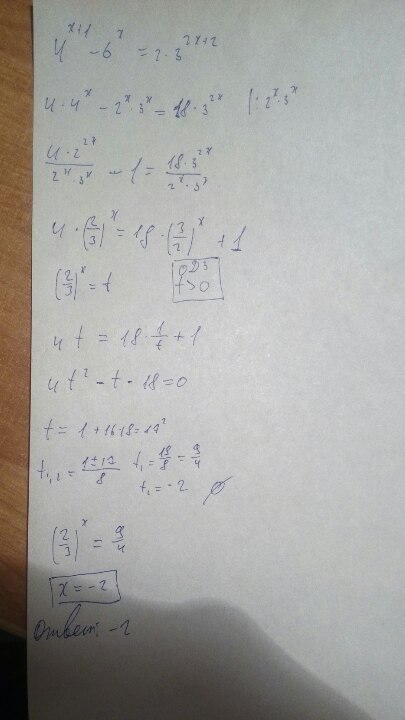 4^{x+1} - 6^x = 2·3^{2x+2}
4·4^x - 2^x·3^x = 18·3^{2x} |: 2^x·3^x
\frac{4·2^{2x}}{2^x·3^x} - 1 = \frac{18·3^{2x}}{2^x·3^x}
4·(\frac{2}{3})^x = 18·(\frac{3}{2})^x + 1
(\frac{2}{3})^x = t ОДЗ t>0
4t = 18·\frac{1}{t} + 1
4t² - t - 18 = 0
t = 1 + 16·18 = 17²
t_{1,2} = \frac{1±17}{8} t_1 = \frac{18}{8} = \frac{9}{4}
t_2 = -2 ∅
(\frac{2}{3})^x = \frac{9}{4}
x = -2
Ответ: -2